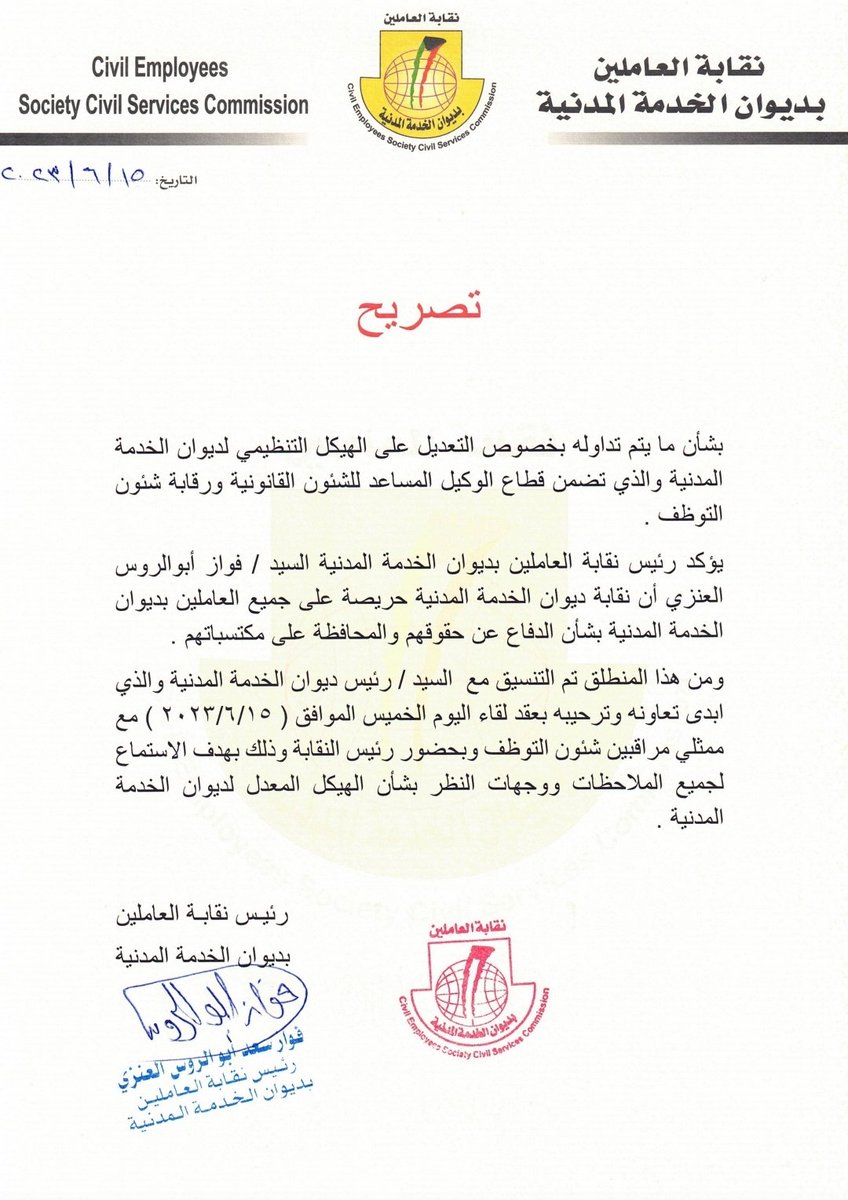 نقابة العاملين
Civil Employees
Society Civil Services Commission
نقابة العاملين
بديوان الخدمة المدنية
بديوان الخدمة المدنية
Civil Employees Society Civil Services Commission
التاريخ: ٢٠٢٣/٦/١٥
تصريح
بشأن ما يتم تداوله بخصوص التعديل على الهيكل التنظيمي لديوان الخدمة
المدنية والذي تضمن قطاع الوكيل المساعد للشئون القانونية ورقابة شئون
التوظف .
يؤكد رئيس نقابة العاملين بديوان الخدمة المدنية السيد / فواز أبوالروس
العنزي أن نقابة ديوان الخدمة المدنية حريصة على جميع العاملين بديوان
الخدمة المدنية بشأن الدفاع عن حقوقهم والمحافظة على مكتسباتهم .
ومن هذا المنطلق تم التنسيق مع السيد / رئيس ديوان الخدمة المدنية والذي
ابدى تعاونه وترحيبه بعقد لقاء اليوم الخميس الموافق ( ٢٠٢٣/٦/١٥ ) مع
ممثلي مراقبين شئون التوظف وبحضور رئيس النقابة وذلك بهدف الاستماع
لجميع الملاحظات ووجهات النظر بشأن الهيكل المعدل لديوان الخدمة
المدنية .
رئيس نقابة العاملين
بديوان الخدمة المدنية
فواز ابوالروس
فواز سعد أبو الروس العنزي
رئيس نقابة العاملين
بديوان الخدمة المدنية
نقابة العاملين
بديوان الخدمة المدنية
Civil Employees Society Civil Services Commission